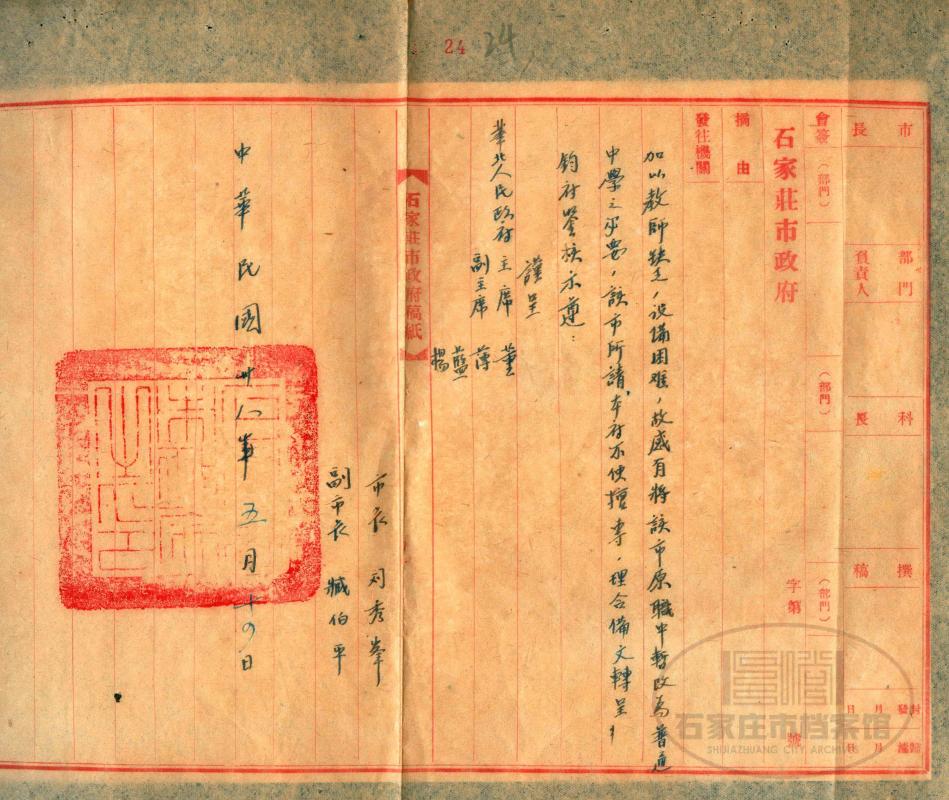 24
24
市長
部門負責人
科長
撰稿
月 日封發
月 日歸檔
會簽
(部門)
(部門)
(部門)
石家莊市政府
字第 號
摘由
發往機關
加以教師缺乏,設備困难,故感有將該市原職中暫改為普通
中學之必要,該市所請,本府不便擅專,理合備文轉呈
鈞府鑒核示遵:
謹呈
華北人民政府主席 董
副主席 薄
藍
楊
【石家莊市政府稿紙】
市长 刘秀峯
副市长 臧伯平
中華民國卅八年五月十四日
石家庄市档案馆
SHIJIAZHUANG CITY ARCHIVES